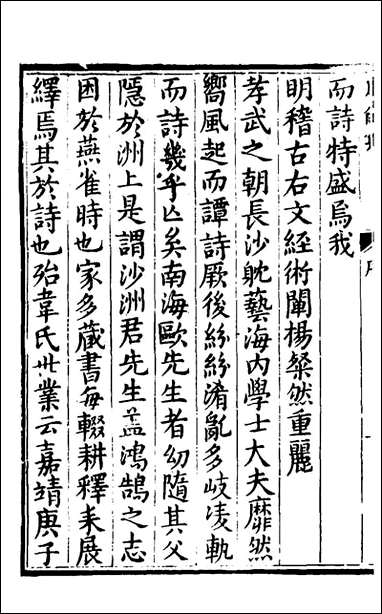 而詩特盛焉我
明稽古右文經術闡楊粲然重麗
孝武之朝長沙躭藝海內學士大夫靡然
嚮風起而譚詩厥後紛紛淆亂多岐凌軌
而詩幾乎亾矣南海歐先生者幼隨其父
隱於洲上是謂沙洲君先生盖鴻鵠之志
困於燕雀時也家多蔵書每輟耕釋耒展
繹焉其於詩也殆韋氏丗業云嘉靖庚子